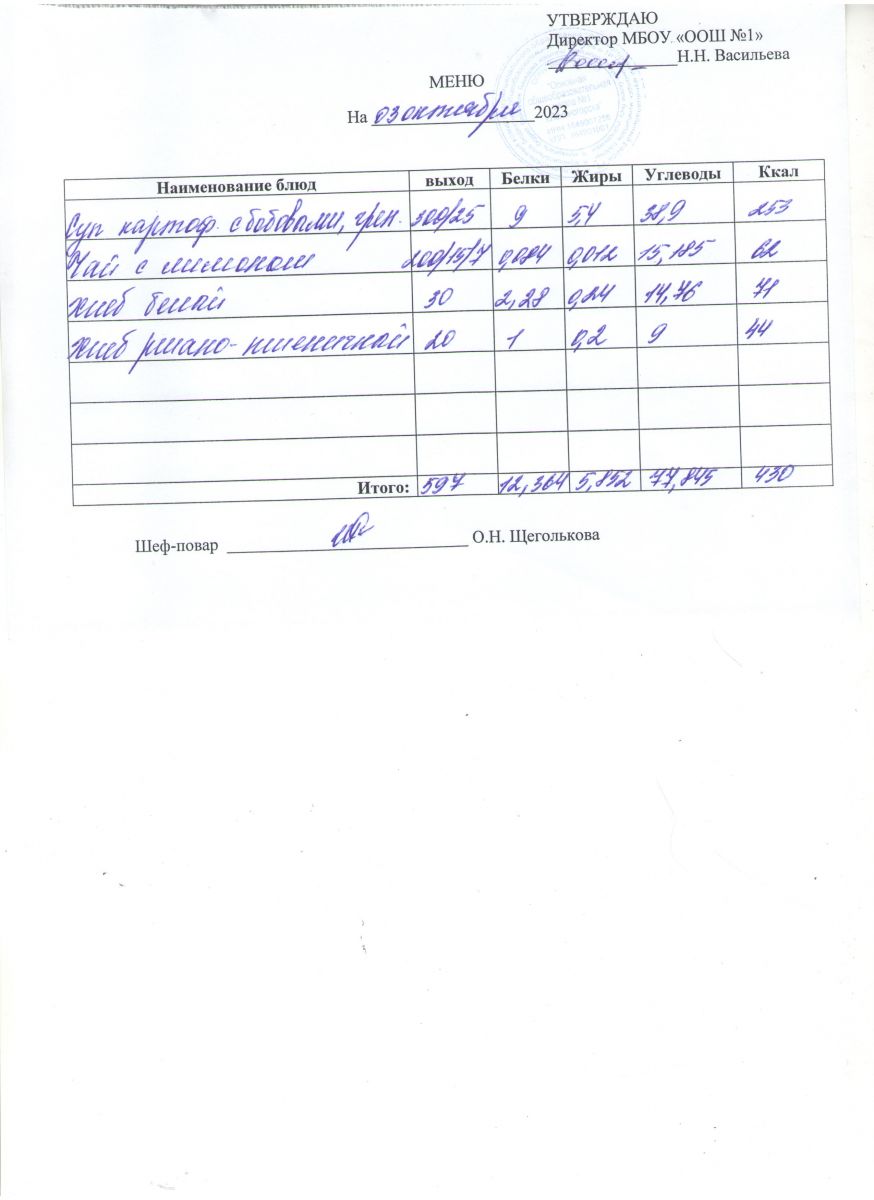 УТВЕРЖДАЮ
Директор МБОУ «ООШ №1»
Н.Н. Васильева
МЕНЮ
На 03 октября 2023
Наименование блюд выход Белки Жиры Углеводы Ккал
Суп картоф. с бобовыми, грен. 300/25 9 5,4 38,9 253
Чай с лимоном 200/15/7 0,084 0,012 15,185 62
Хлеб белый 30 2,28 0,24 14,76 71
Хлеб ржано-пшеничный 20 1 0,2 9 44
Итого: 597 12,364 5,852 77,845 430
Шеф-повар О.Н. Щеголькова